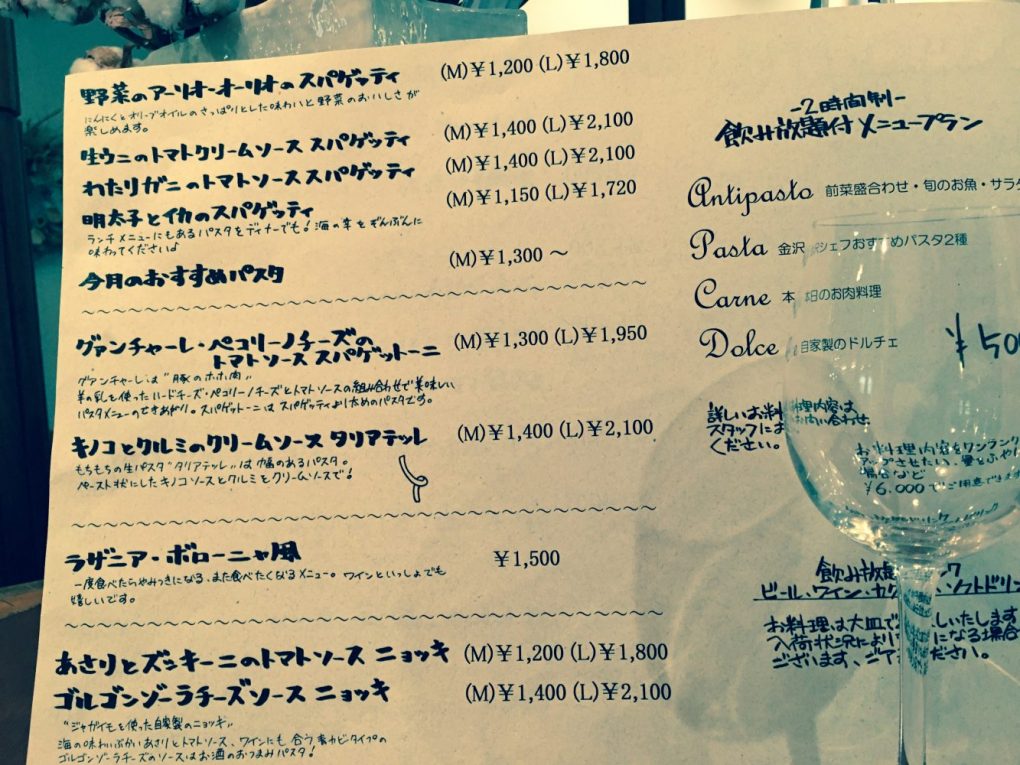 野菜のアーリオ・オーリオのスパゲッティ (M)¥1,200 (L)¥1,800
にんにくとオリーブオイルのさっぱりとした味わいと野菜のおいしさが
楽しめます。
生ウニのトマトクリームソース スパゲッティ (M)¥1,400 (L)¥2,100
わたりガニのトマトソース スパゲッティ (M)¥1,400 (L)¥2,100
明太子とイカのスパゲッティ (M)¥1,150 (L)¥1,720
ランチメニューにもあるパスタをディナーでも!海の幸をぞんぶんに
味わってください♪
今月のおすすめパスタ (M)¥1,300 〜
グァンチャーレ・ペコリーノチーズの
トマトソース スパゲットーニ (M)¥1,300 (L)¥1,950
グァンチャーレは"豚のホホ肉"
羊の乳を使ったハードチーズ・ペコリーノチーズとトマトソースの組み合わせで美味しい
パスタメニューのできあがり。スパゲットーニはスパゲッティより太めのパスタです。
キノコとクルミのクリームソース タリアテッレ (M)¥1,400 (L)¥2,100
もちもちの生パスタ"タリアテッレ"は幅のあるパスタ。
ペースト状にしたキノコソースとクルミとクリームソースで!
ラザニア・ボローニャ風 ¥1,500
一度食べたらやみつきになる、また食べたくなるメニュー。ワインといっしょでも
嬉しいです。
あさりとズッキーニのトマトソース ニョッキ (M)¥1,200 (L)¥1,800
ゴルゴンゾーラチーズソース ニョッキ (M)¥1,400 (L)¥2,100
"ジャガイモを使った自家製のニョッキ"
海の味わいぶかいあさりとトマトソース、ワインにも合う青カビタイプの
ゴルゴンゾーラチーズのソースはお酒のおつまみパスタ!
-2時間制-
飲み放題付メニュープラン
Antipasto 前菜盛合わせ・旬のお魚・サラダ
Pasta 金沢 シェフおすすめパスタ2種
Carne 本日のお肉料理
Dolce 自家製のドルチェ
¥500
詳しいお料理内容は
スタッフにお問い合わせ
ください。
お料理内容をワンランク
アップさせたい、
場合など
¥6,000でご用意できます
飲み放題
ビール、ワイン、カク ソフトドリン
お料理は大皿で しいたします
入荷状況により になる場合
ございます、ご了 ださい。